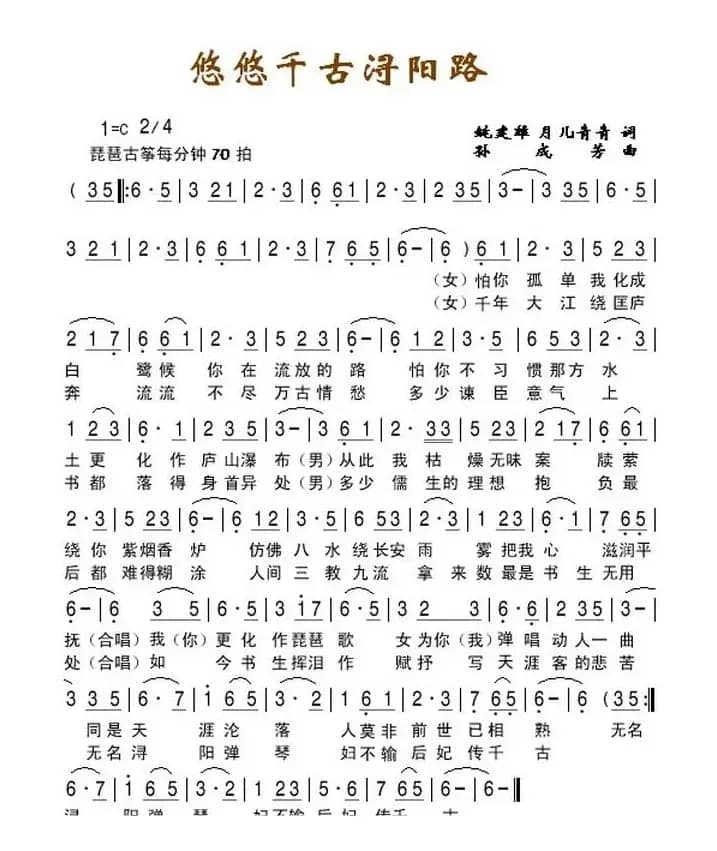 悠悠千古浔阳路
1=C 2/4
姚建雄 月儿青青 词
琵琶古筝每分钟 70 拍
孙成芳 曲
( 3 5 ‖: 6 · 5 | 3 2 1 | 2 · 3 | 6 6 1 | 2 · 3 | 2 3 5 | 3 – | 3 3 5 | 6 · 5 |
3 2 1 | 2 · 3 | 6 6 1 | 2 · 3 | 7 6 5 | 6 – | 6 ) 6 1 | 2 · 3 | 5 2 3 |
(女) 怕你 孤 单 我 化成
(女) 千年 大 江 绕 匡庐
2 1 7 | 6 6 1 | 2 · 3 | 5 2 3 | 6 – | 6 1 2 | 3 · 5 | 6 5 3 | 2 · 3 |
白 鹭候 你 在 流放的 路 怕你 不 习 惯那方 水
奔 流流 不 尽 万古情 愁 多少 谏 臣 意气 上
1 2 3 | 6 · 1 | 2 3 5 | 3 – | 3 6 1 | 2 · 3 3 | 5 2 3 | 2 1 7 | 6 6 1 |
土更 化 作 庐山瀑 布 (男) 从此 我 枯 燥无味 案 牍萦
书都 落 得 身首异 处 (男) 多少 儒 生的 理想 抱 负最
2 · 3 | 5 2 3 | 6 – | 6 1 2 | 3 · 5 | 6 5 3 | 2 · 3 | 6 · 1 | 7 6 5 |
绕 你 紫烟香 炉 仿佛 八 水 绕长安 雨 雾 把我 心 滋润平
后 都 难得糊 涂 人间 三 教 九流 拿 来 数最是 书 生 无用
6 – | 6 3 5 | 6 · 5 | 3 1 7 | 6 · 5 | 3 2 3 | 6 · 6 | 2 3 5 | 3 – |
抚 (合唱) 我 (你) 更 化 作琵琶 歌 女为你 (我) 弹 唱 动人一 曲
处 (合唱) 如 今 书 生挥泪 作 赋抒 写 天 涯 客的悲 苦
3 3 5 | 6 · 7 | 1 6 5 | 3 · 2 | 1 6 1 | 2 · 3 | 7 6 5 | 6 – | 6 ( 3 5 :‖
同是 天 涯沦 落 人莫非 前 世 已相 熟 无名
无名 浔 阳弹 琴 妇不输 后 妃 传千 古
6 · 7 | 1 6 5 | 3 · 2 | 1 2 3 | 5 · 6 | 7 6 5 | 6 – | 6 – ‖
浔 阳弹 琴 妇不输 后 妃 传千 古